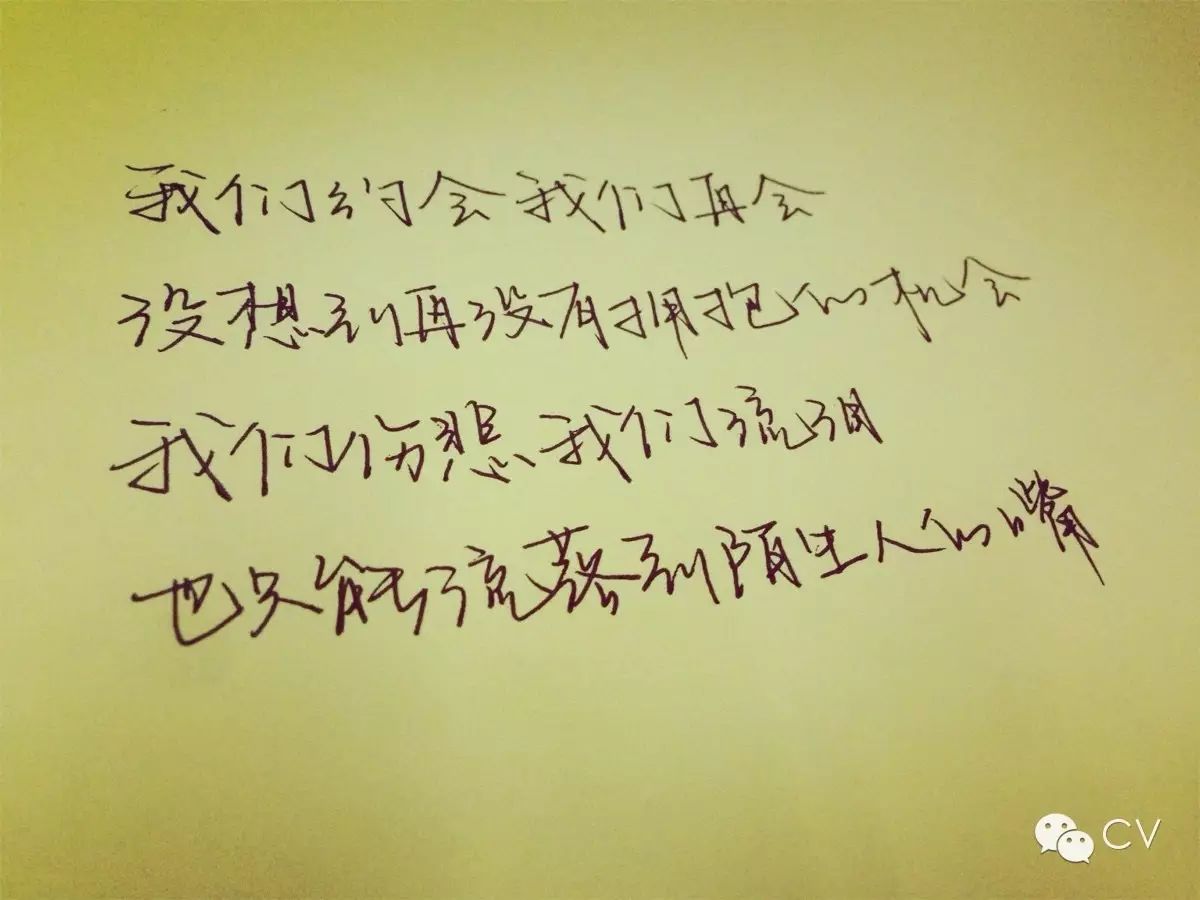 我们约会我们再会
没想到再没有拥抱的机会
我们伤悲我们流泪
也只能流落到陌生人的嘴
CV